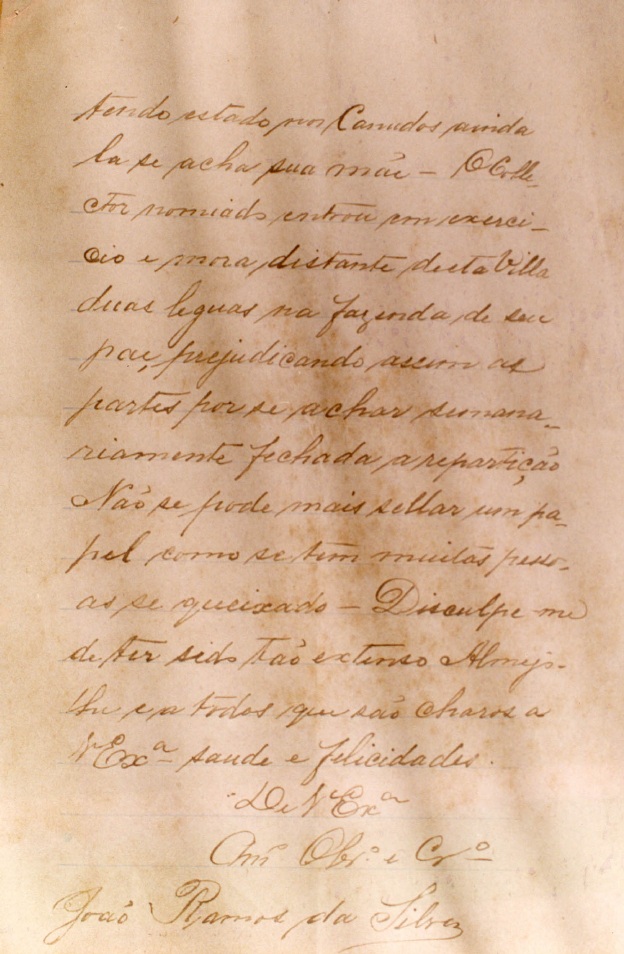 tendo estado nos Canudos ainda
la se acha sua mãe – O Colle-
ctor nomiado entrou em exerci-
cio e mora distante desta Villa
duas leguas na fazenda de seu
pae, prejudicando assim as
partes por se achar semana-
riamente fechada a repartição
Não se pode mais sellar um pa-
pel como se tem muitas pesso-
as se queixado – Disculpe-me
de ter sido tão extenso Almejo-
lhe e a todos que são charos a
VExª saude e felicidades.
De VExª
Amº Obrº e Crº
João Ramos da Silva